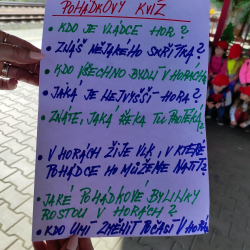 POHÁDKOVÝ KVÍZ
• KDO JE VLÁDCE HOR?
• ZNÁŠ NĚJAKÉHO SKŘÍTKA?
• KDO VŠECHNO BYDLÍ V HORÁCH?
• JAKÁ JE NEJVYŠŠÍ HORA?
• ZNÁTE, JAKÁ ŘEKA TU PROTÉKÁ?
• V HORÁCH ŽIJE VLK, V KTERÉ
POHÁDCE HO MŮŽEME NAJÍT?
• JAKÉ POHÁDKOVÉ BYLINKY
ROSTOU V HORÁCH?
• KDO UMÍ ZMĚNIT POČASÍ V HORÁCH